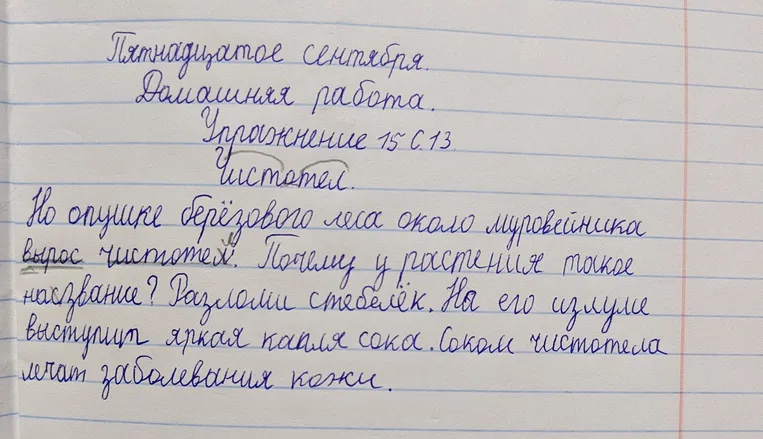 Пятнадцатое сентября.
Домашняя работа.
Упражнение 15 С.13
Чистотел.
На опушке берёзового леса около муровейника
вырос чистотел. Почему у растения такое
название? Разломи стебелёк. На его изломе
выступит яркая капля сока. Соком чистотела
лечат заболевания кожи.